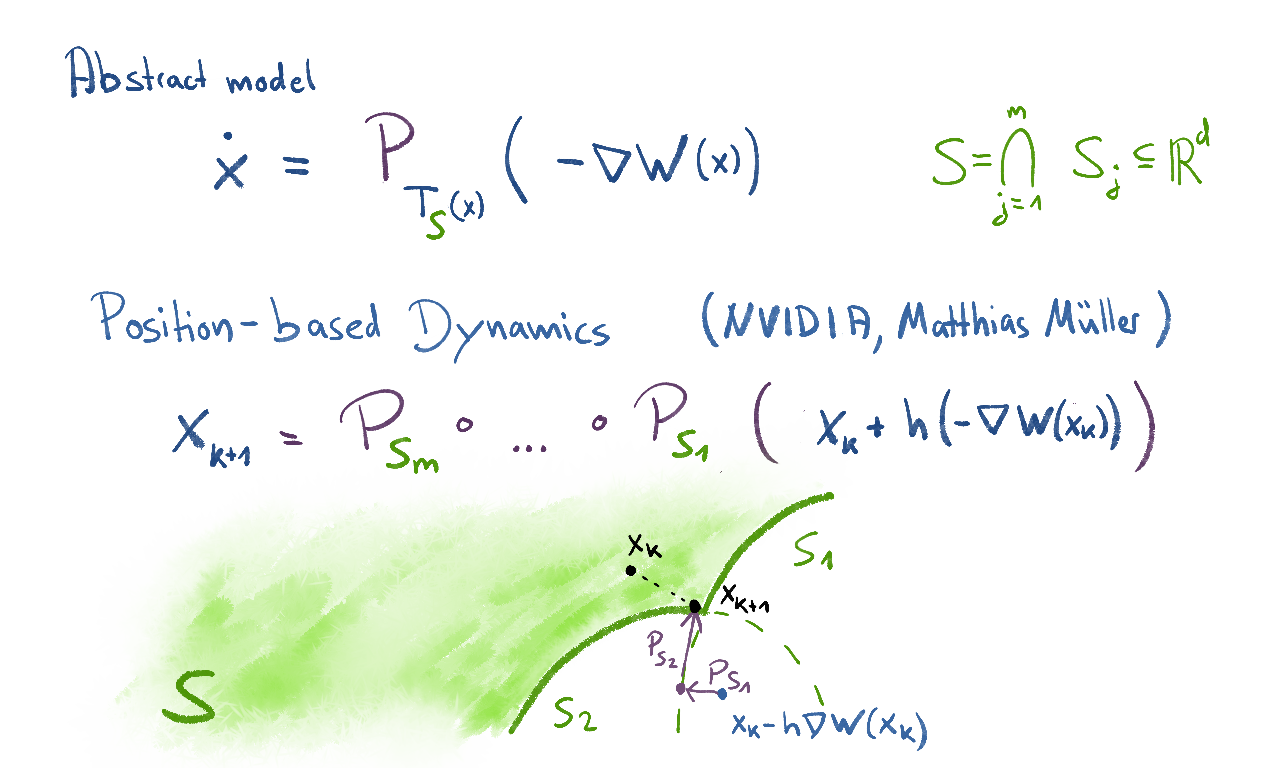 Abstract model
ẋ = P_{T_S(x)} ( -∇W(x) )
S = ⋂_{j=1}^{m} S_j ⊆ ℝ^d
Position-based Dynamics (NVIDIA, Matthias Müller)
x_{k+1} = P_{S_m} ∘ ... ∘ P_{S_1} ( x_k + h(-∇W(x_k)) )
x_k
S_1
x_{k+1}
P_{S_2}
P_{S_1}
S
S_2
x_k - h∇W(x_k)